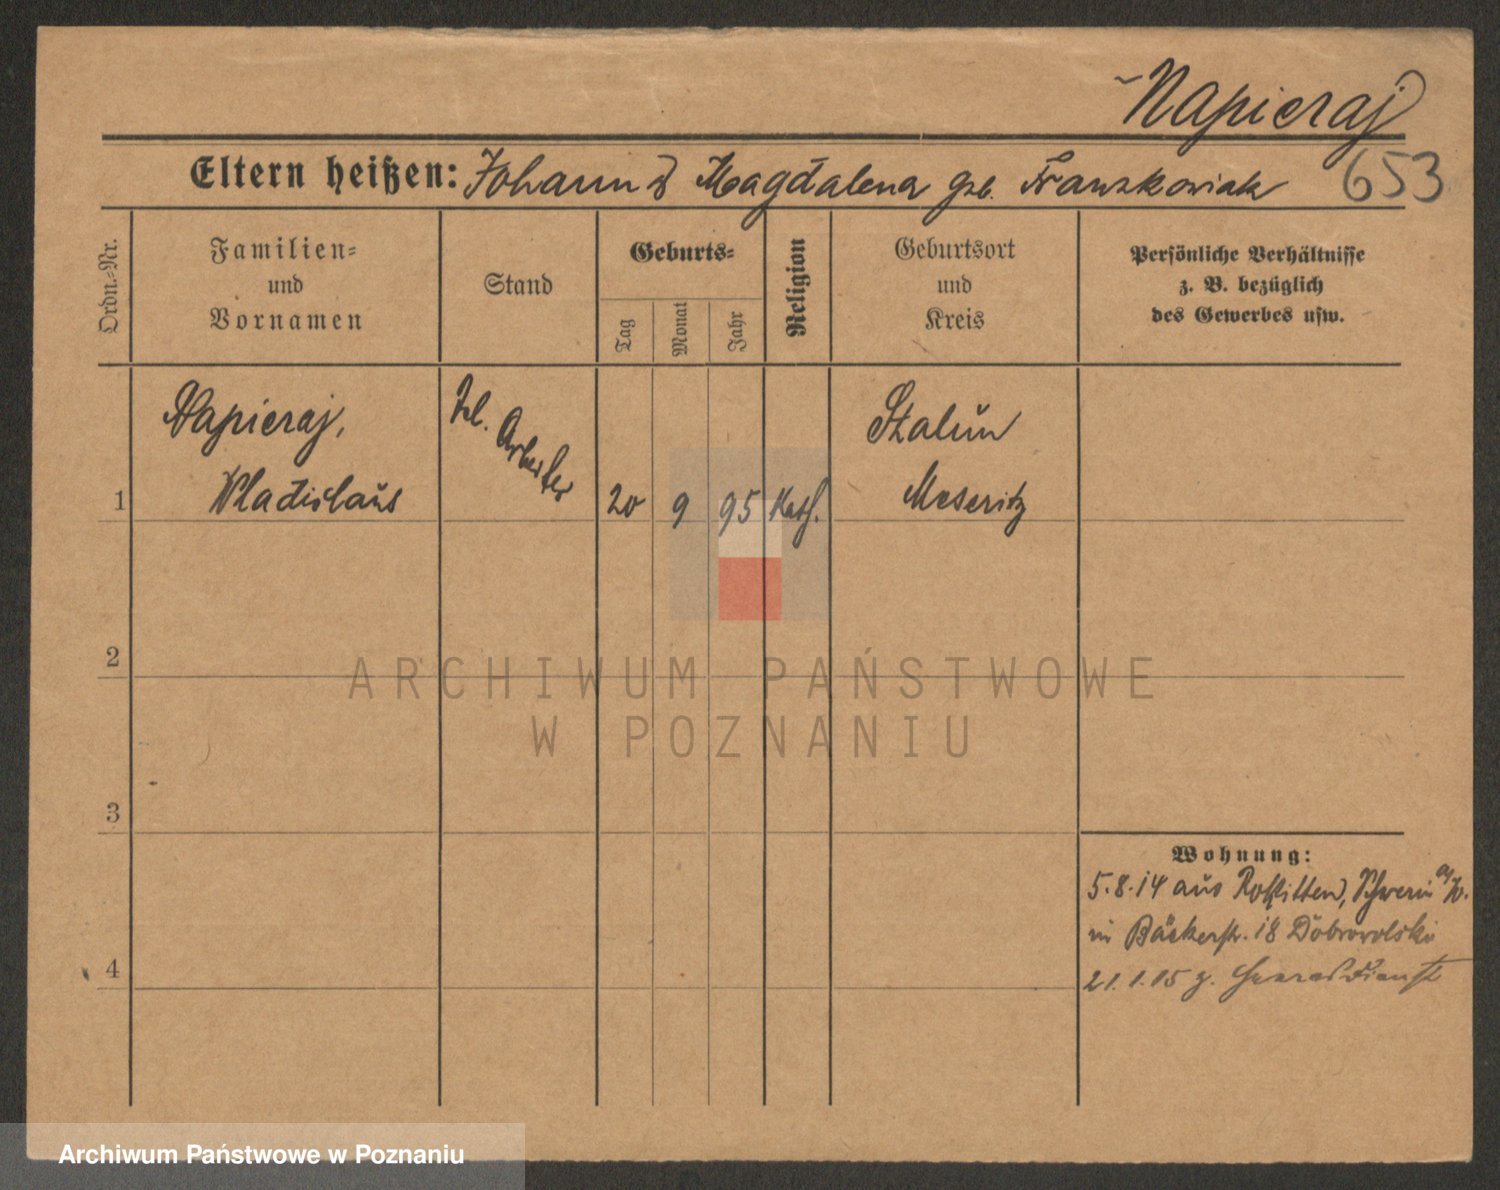 Napieraj
653
Eltern heißen: Johann & Magdalena geb. Franzkowiak
Ordn.-Nr.
Familien-
und
Vornamen
Stand
Geburts-
Tag
Monat
Jahr
Religion
Geburtsort
und
Kreis
Persönliche Verhältnisse
z. B. bezüglich
des Gewerbes usw.
1
Napieraj,
Wladislaus
Arbeiter
20
9
95
Kath.
Meseritz
2
3
4
Wohnung:
5.8.14 aus Schwerin a/W.
in Bäckerstr. 18 Dobrowolski
21.1.15 z. Heeresdienst
ARCHIWUM PAŃSTWOWE
W POZNANIU
Archiwum Państwowe w Poznaniu